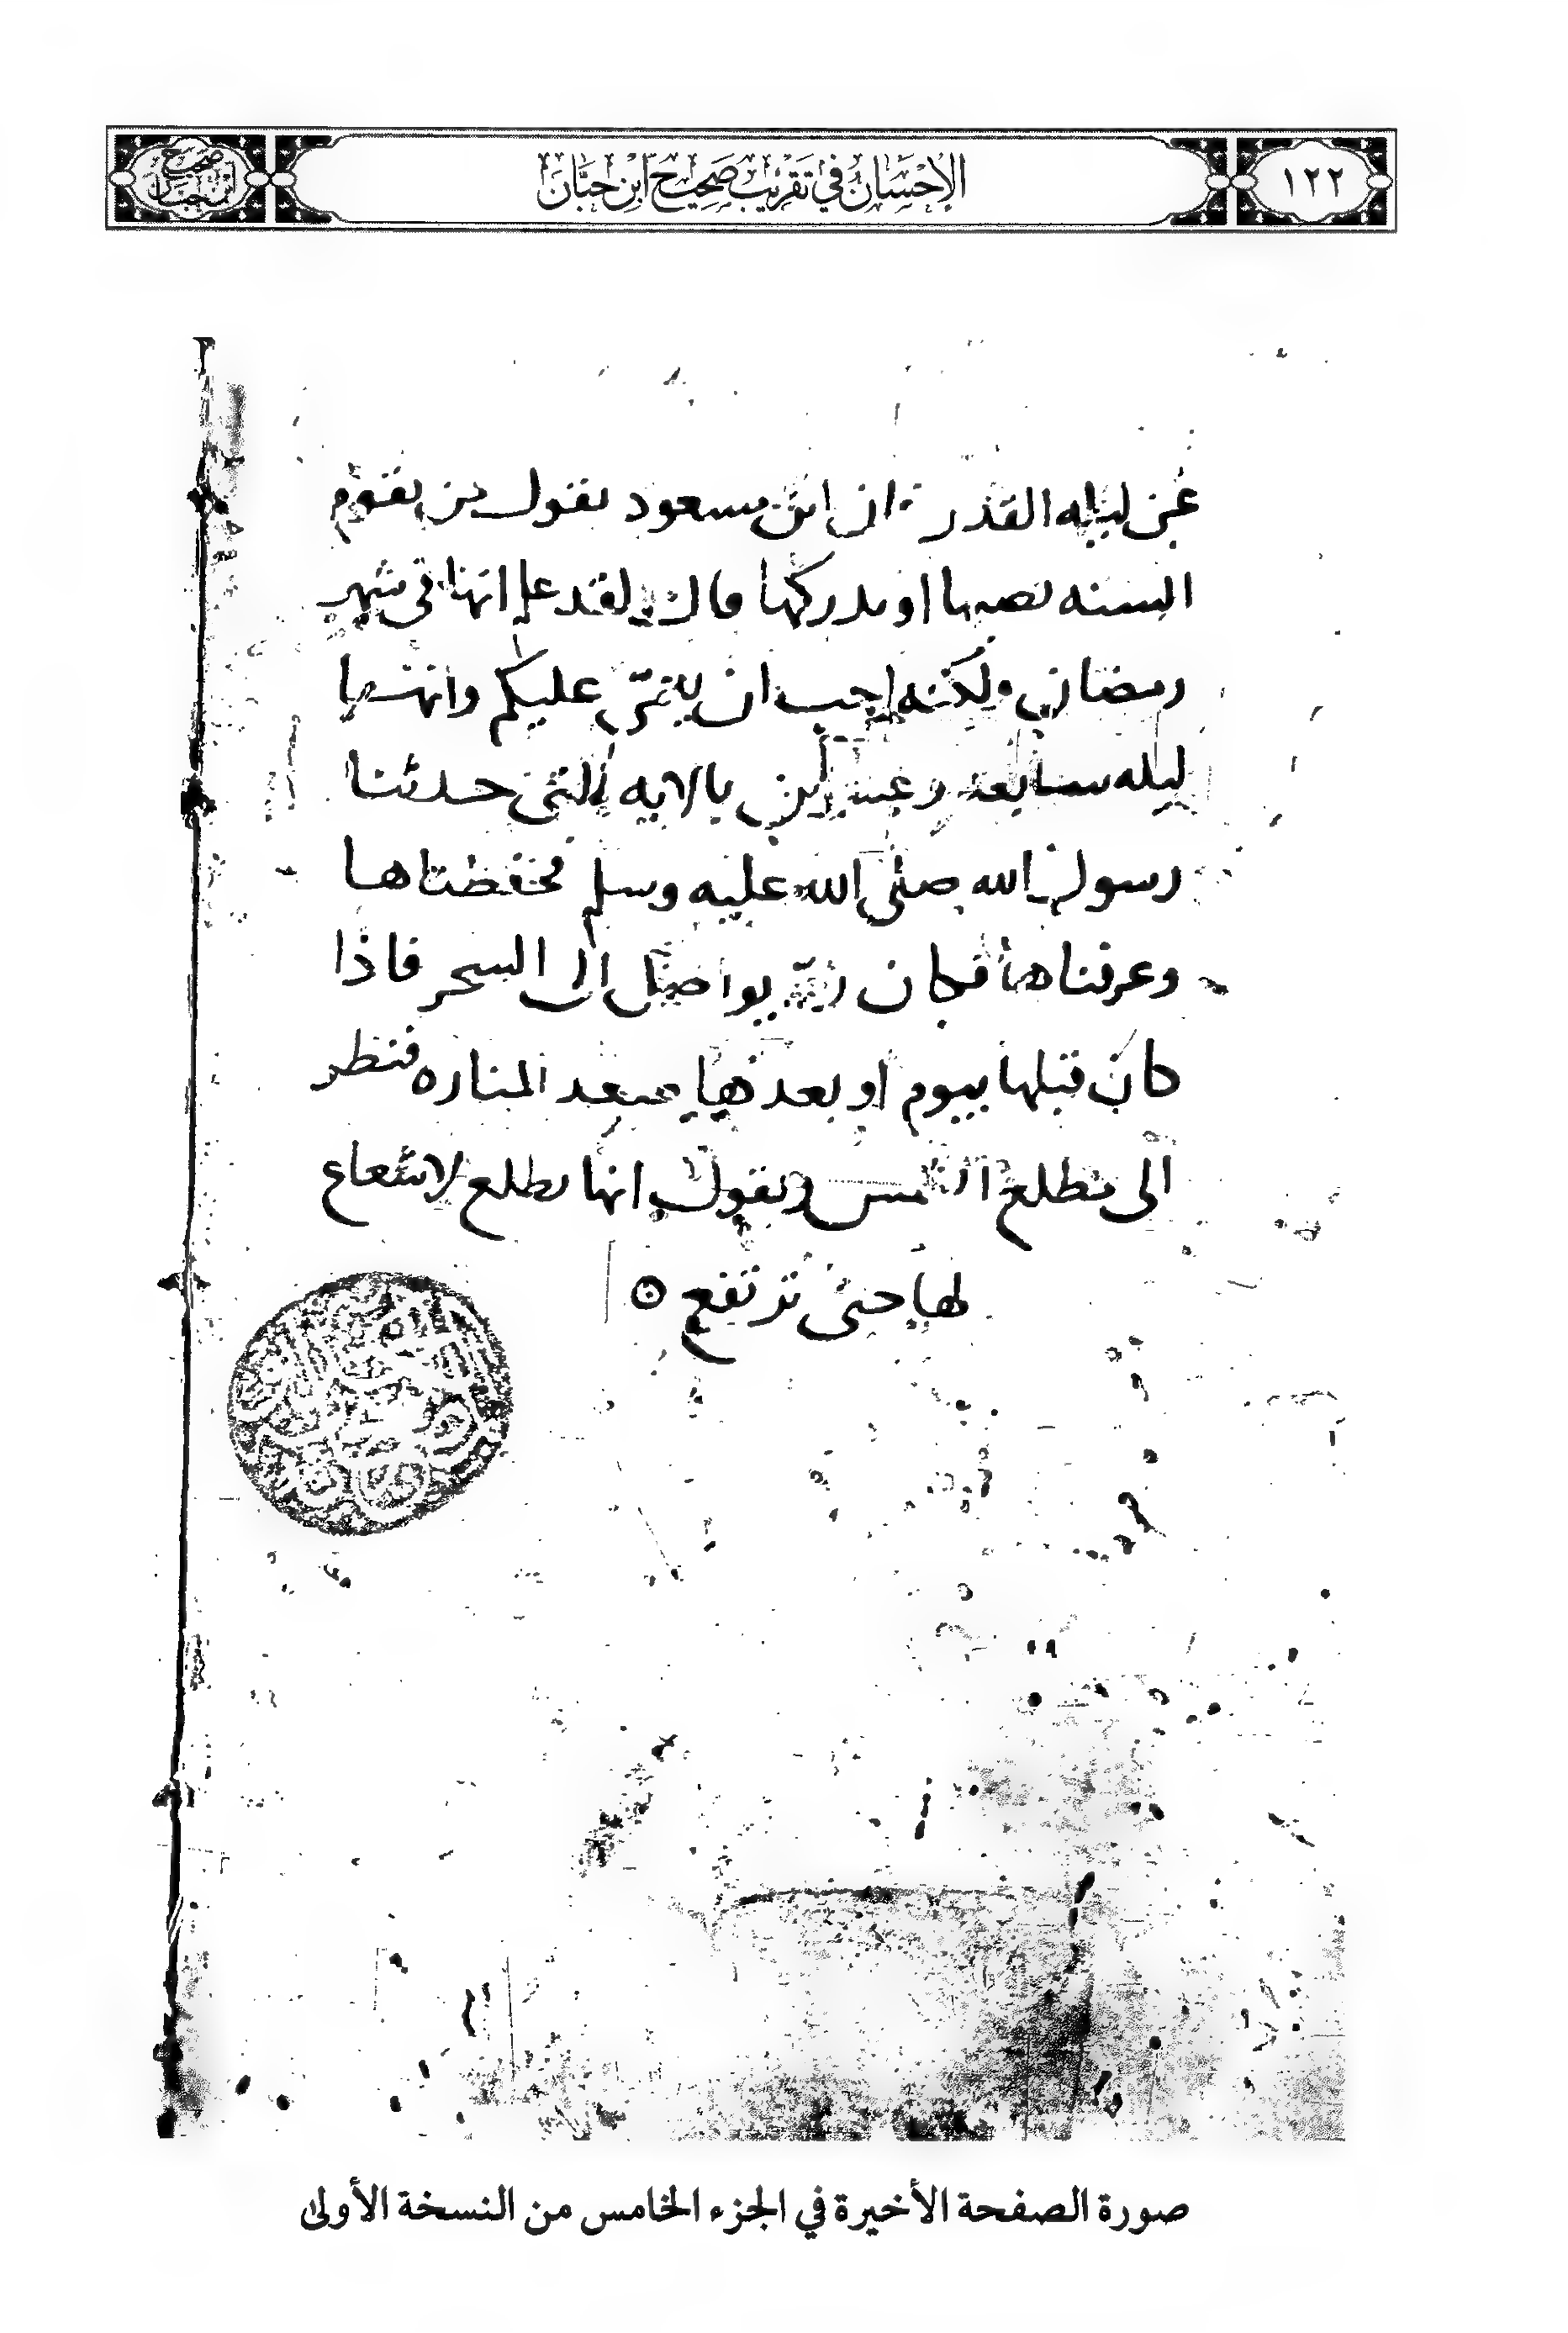 ١٢٢
الإِحْسَانُ فِي تَقْرِيبِ صَحِيحِ ابْنِ حِبَّانَ
صحيح ابن حبان
عن ليله القدر فان ابن مسعود يقول من يقوم
السنه يصبها او يدركها قال لقد علم انها في شهر
رمضان ولكنه احب ان يعمى عليكم وانها
ليله سابعه وعشرين بالايه التى حدثنا
رسول الله صلى الله عليه وسلم فحفظناها
وعرفناها فكان زر يواصل الى السحر فاذا
كان قبلها بيوم او بعدها صعد المناره فنظر
الى مطلع الشمس ويقول انها تطلع لا شعاع
لها حتى ترتفع
صورة الصفحة الأخيرة في الجزء الخامس من النسخة الأولى